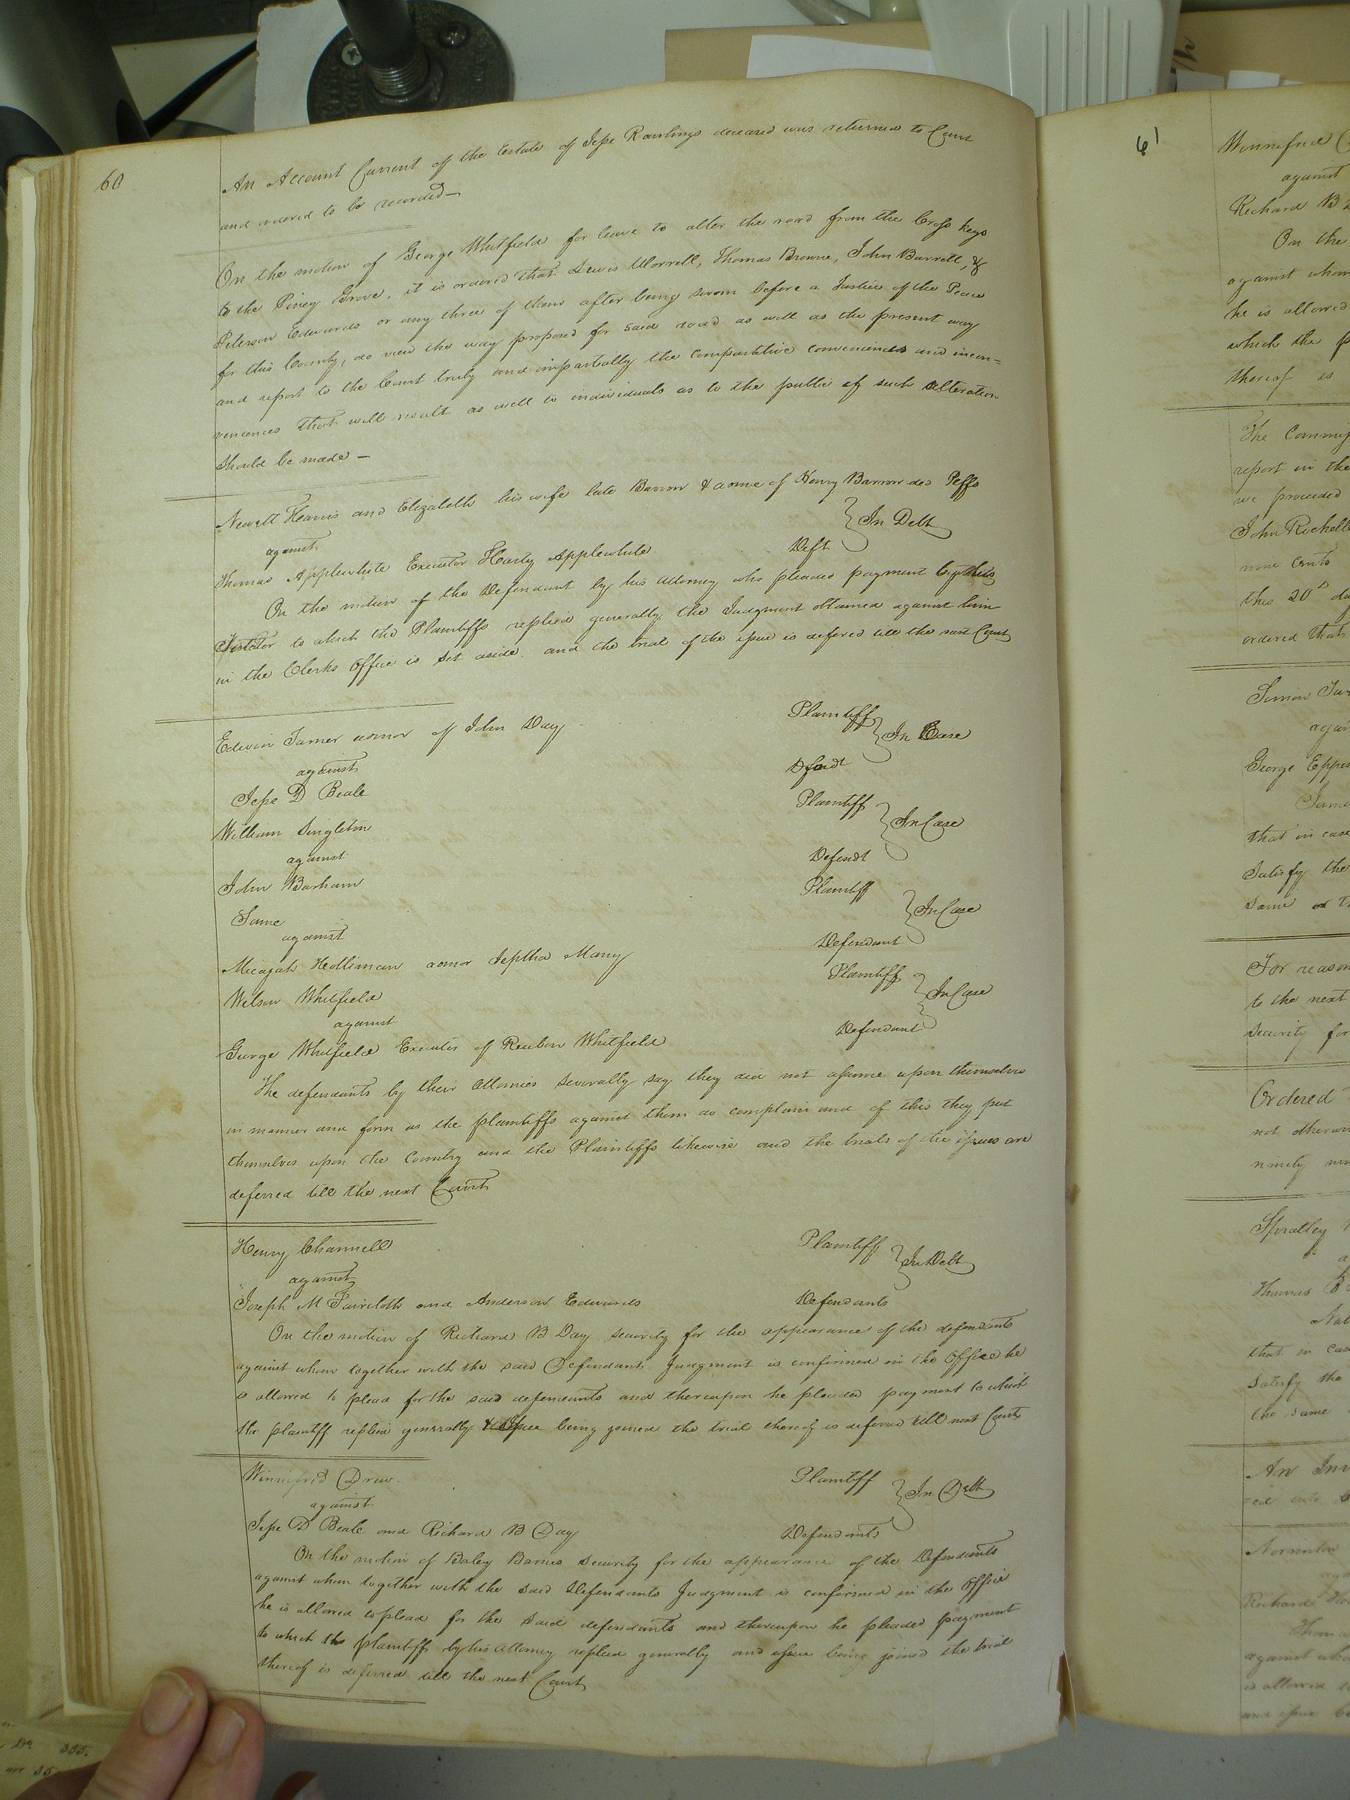 60
An Account Current of the Estate of Jesse Rawlings deceased was returned to Court
and ordered to be recorded—
On the motion of George Whitfield for leave to alter the road from the Cross Keys
to the Piney Grove, it is ordered that Lewis Worrell, Thomas Browne, John Barrett, &
Peterson Edwards or any three of them after being sworn before a Justice of the Peace
for this County, do view the way proposed for said road as well as the present way
and report to the Court truly and impartially the comparitive conveniences and incon=
veniences that will result as well to individuals as to the public if such alteration
Should be made —
Newett Harris and Elizabeth his wife late Barrow & admx of Henry Barrow decd Peffs
against
} In Debt
Thomas Applewhite Executor Henry Applewhite Deft
On the motion of the Defendant by his Attorney who pleaded payment by his
Testator to which the Plaintiffs replied generally, the Judgment obtained against him
in the Clerks Office is set aside and the trial of the issue is defered till the next Court
Edwin Turner admor of John Day Plaintiff
against
} In Case
Jesse D Beale Defendt
William Singleton Plaintiff
against
} In Case
John Barham Defendt
Same Plaintiff
against
} In Case
Micajah Holliman admor Jeptha Many Defendant
Wilson Whitfield Plaintiff
against
} In Case
George Whitfield Executor of Reuben Whitfield Defendant
The defendants by their Attornies severally say they did not assume upon themselves
in manner and form as the plaintiffs against them do complain and of this they put
themselves upon the Country and the Plaintiffs likewise and the trials of the issues are
deferred till the next Court
Henry Channell Plaintiff
against
} In Debt
Joseph M Faircloth and Anderson Edwards Defendants
On the motion of Richard B Day security for the appearance of the defendants
against whom together with the said Defendants Judgment is confirmed in the Office he
is allowed to plead for the said defendants and thereupon he pleaded payment to which
the plaintiff replied generally & issue being joined the trial thereof is deferred till next Court
Winnifred Drew Plaintiff
against
} In Debt
Jesse D Beale and Richard B Day Defendants
On the motion of Boley Barnes Security for the appearance of the Defendants
against whom together with the said Defendants Judgment is confirmed in the Office
he is allowed to plead for the said defendants and thereupon he pleaded payment
to which the plaintiff by his Attorney replied generally and issue being joined the trial
thereof is deferred till the next Court
61
Winnefred
against
Richard B
On the
against whom
he is allowed
which the
thereof is
The Commiss
report in the
we proceeded
John Richell
nine cents
this 20th da
ordered that
Simon Tur
again
George Eppes
Same
that in case
Satisfy the
same or t
For reason
to the next
security for
Ordered
not otherwi
ninety nin
Spratley
a
Thomas B
Nat
that in cas
Satisfy the
the same
An Inv
Richard
Thoma
against who
is allowed
and issue be